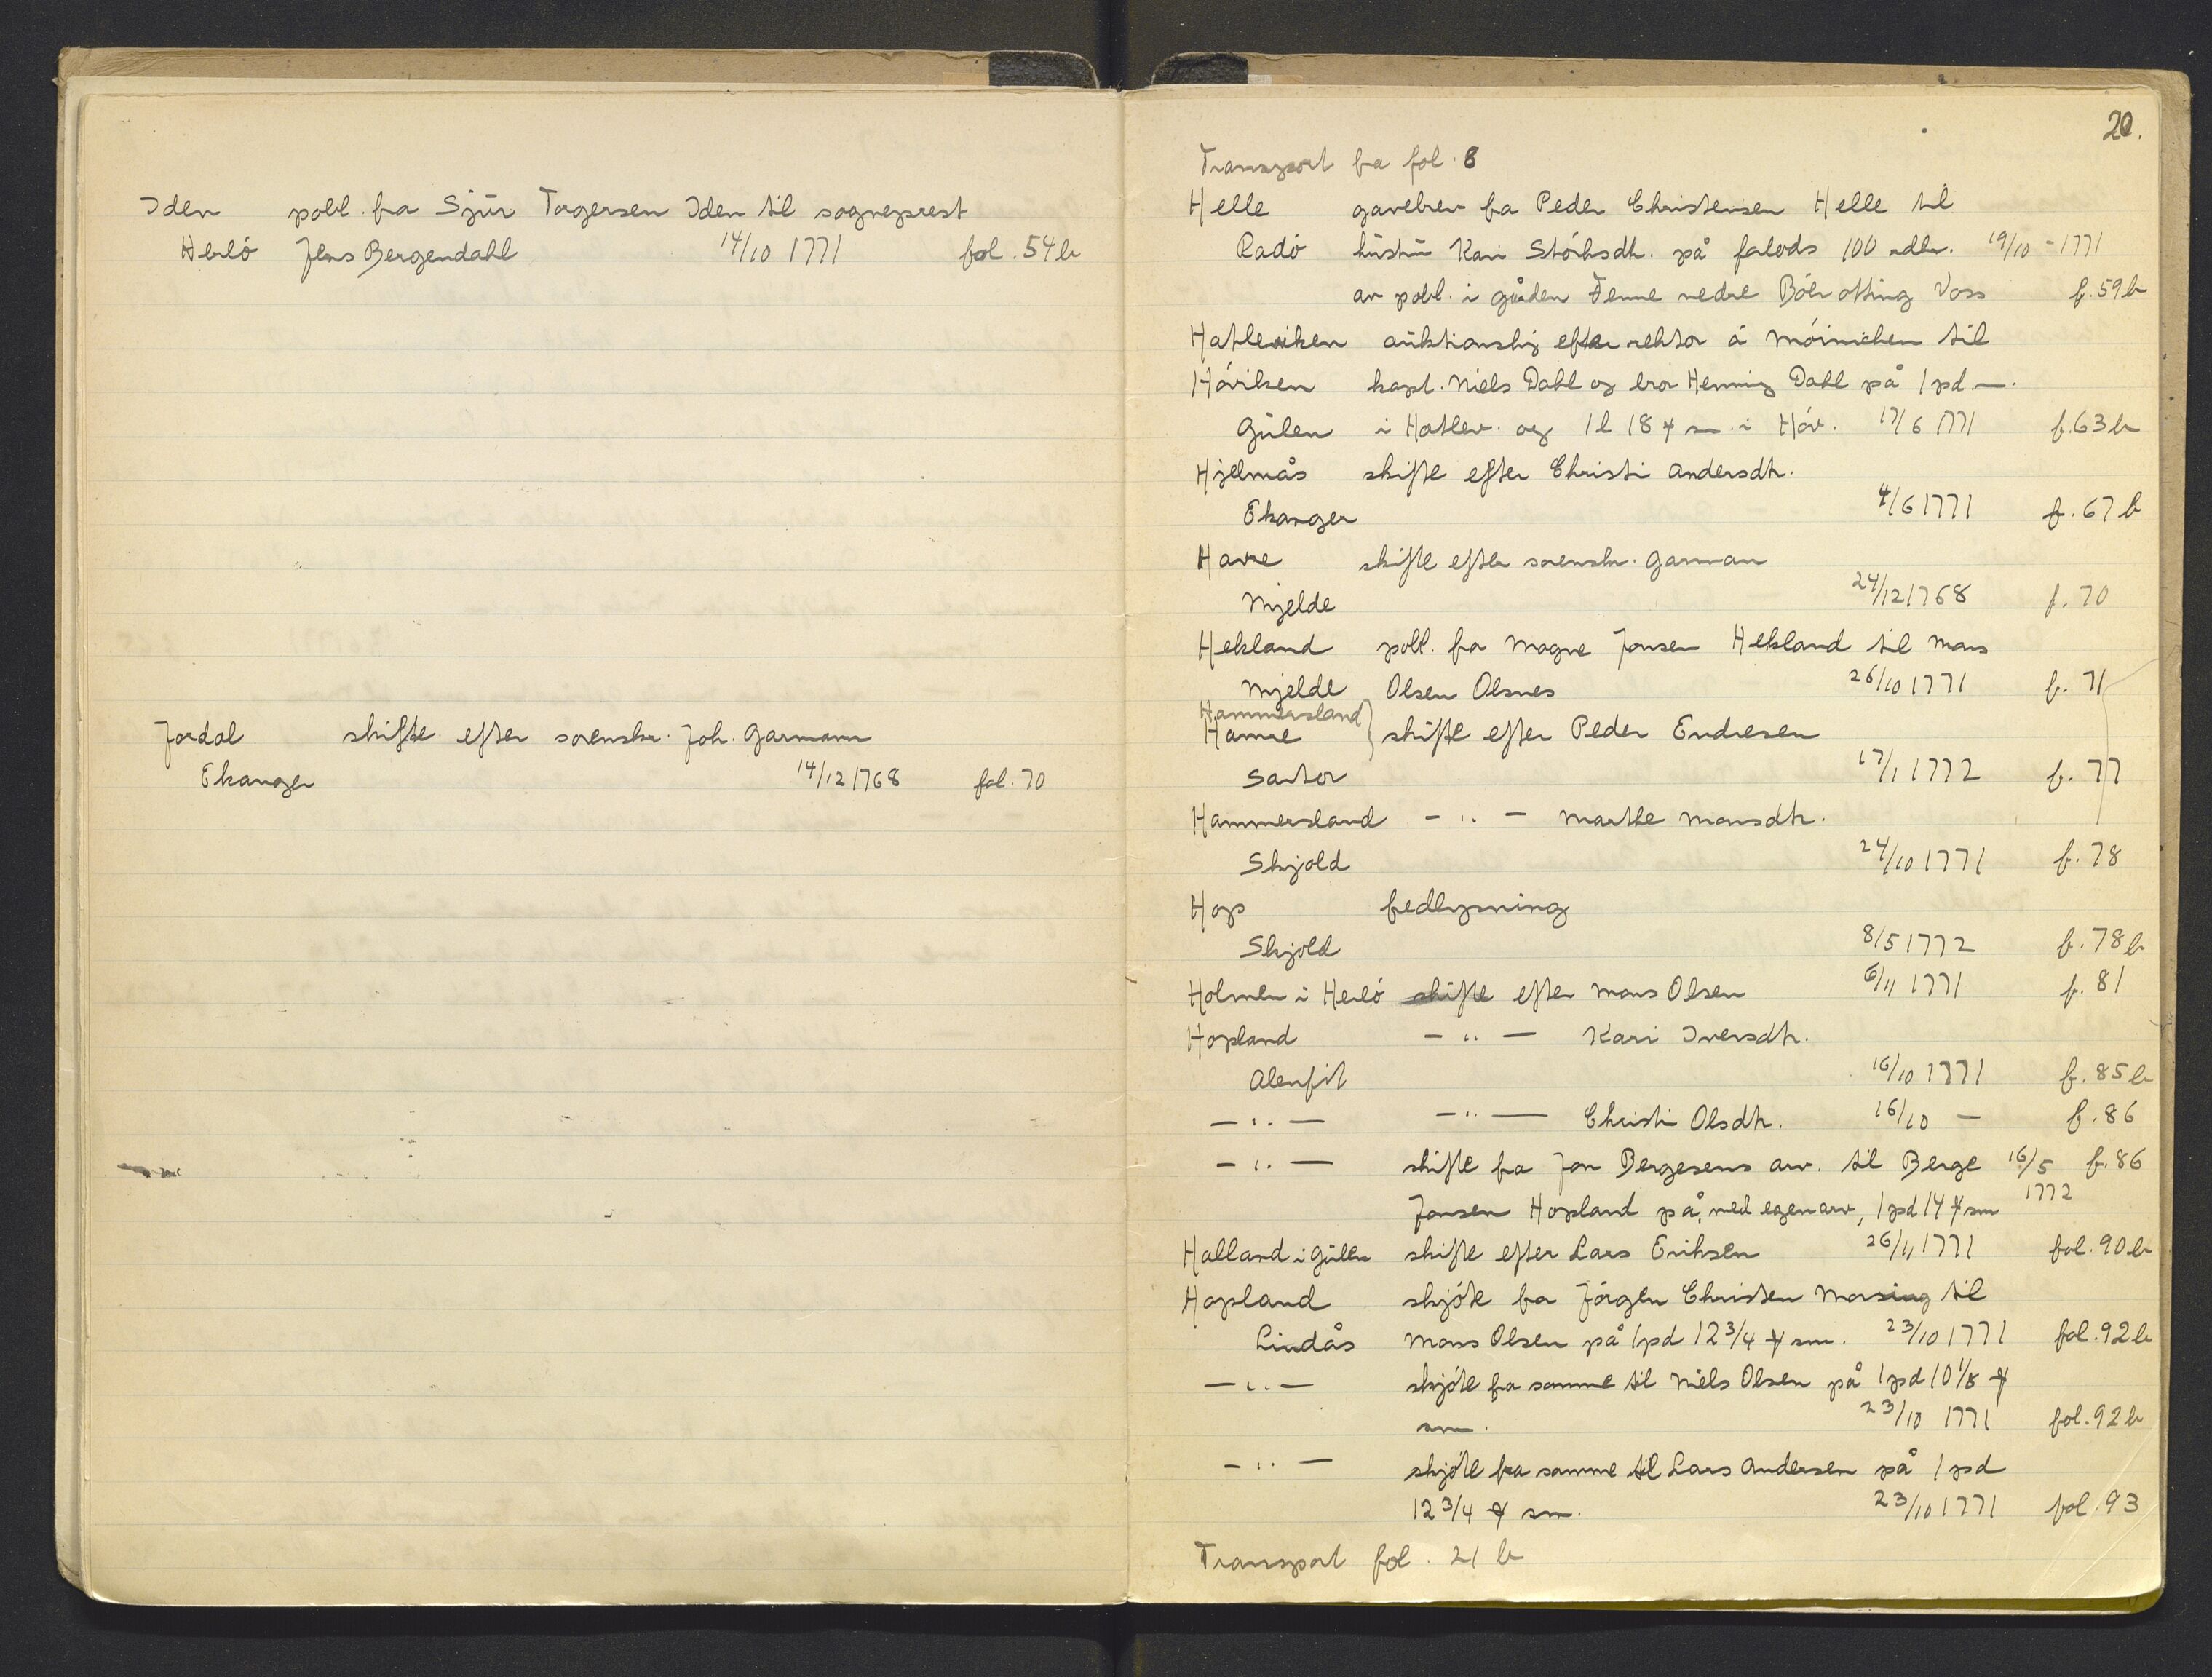 Iden pobl. fra Sjur Torgersen Iden til sogneprest
Herlö Jens Bergendahl 14/10 1771 fol. 54 b
Jordal skifte efter sorenskr. Joh. Garmann
Ekanger 14/12 1768 fol. 70
20.
Transport fra fol. 8
Helle gavebrev fra Peder Christensen Helle til
Radö hustru Kari på falods 100 rdlr. 19/10 - 1771
av pobl. i gården Tenne nedre Bör otting Voss f. 59 b
Hatleviken auktionskj efter rektor á Möinichen til
Hóviken kapt. Niels Dahl og bror Henning Dahl på 1 pd sm.
Gulen i Hatlev. og 1 l 18 ℔ sm. i Höv. 17/6 1771 f. 63 b
Hjelmås skifte efter Christi Andersdtr.
Ekanger 4/6 1771 f. 67 b
Havre skifte efter sorenskr. Garman
Mjelde 24/12 1768 f. 70
Hekland pobl. fra Magne Jonsen Hekland til Mons
Mjelde Olsen Olsnes 26/10 1771 f. 71
Hammersland
Hamre } skifte efter Peder Endresen
Sartor 17/1 1772 f. 77
Hammersland - ,, - Marthe Monsdtr.
Skjold 24/10 1771 f. 78
Hop fredlysning
Skjold 8/5 1772 f. 78 b
Holmen i Herlö skifte efter Mons Olsen 6/11 1771 f. 81
Hopland - ,, - Kari Iversdtr.
Alenfit 16/10 1771 f. 85 b
- ,, - - ,, - Christi Olsdtr. 16/10 - f. 86
- ,, - skifte fra Jon Bergesens arv. til Berge 16/5 f. 86
1772
Jonsen Hopland på, med egen arv, 1 pd 14 ℔ sm
Halland i Gulen skifte efter Lars Eriksen 26/11 1771 fol. 90 b
Hopland skjöte fra Jörgen Christen Morsing til
Lindås Mons Olsen på 1 pd 12 3/4 ℔ sm. 23/10 1771 fol. 92 b
- ,, - skjöte fra samme til Niels Olsen på 1 pd 10 1/8 ℔
sm. 23/10 1771 fol. 92 b
- ,, - skjöte fra samme til Lars Andersen på 1 pd
12 3/4 ℔ sm. 23/10 1771 fol. 93
Transport fol. 21 b